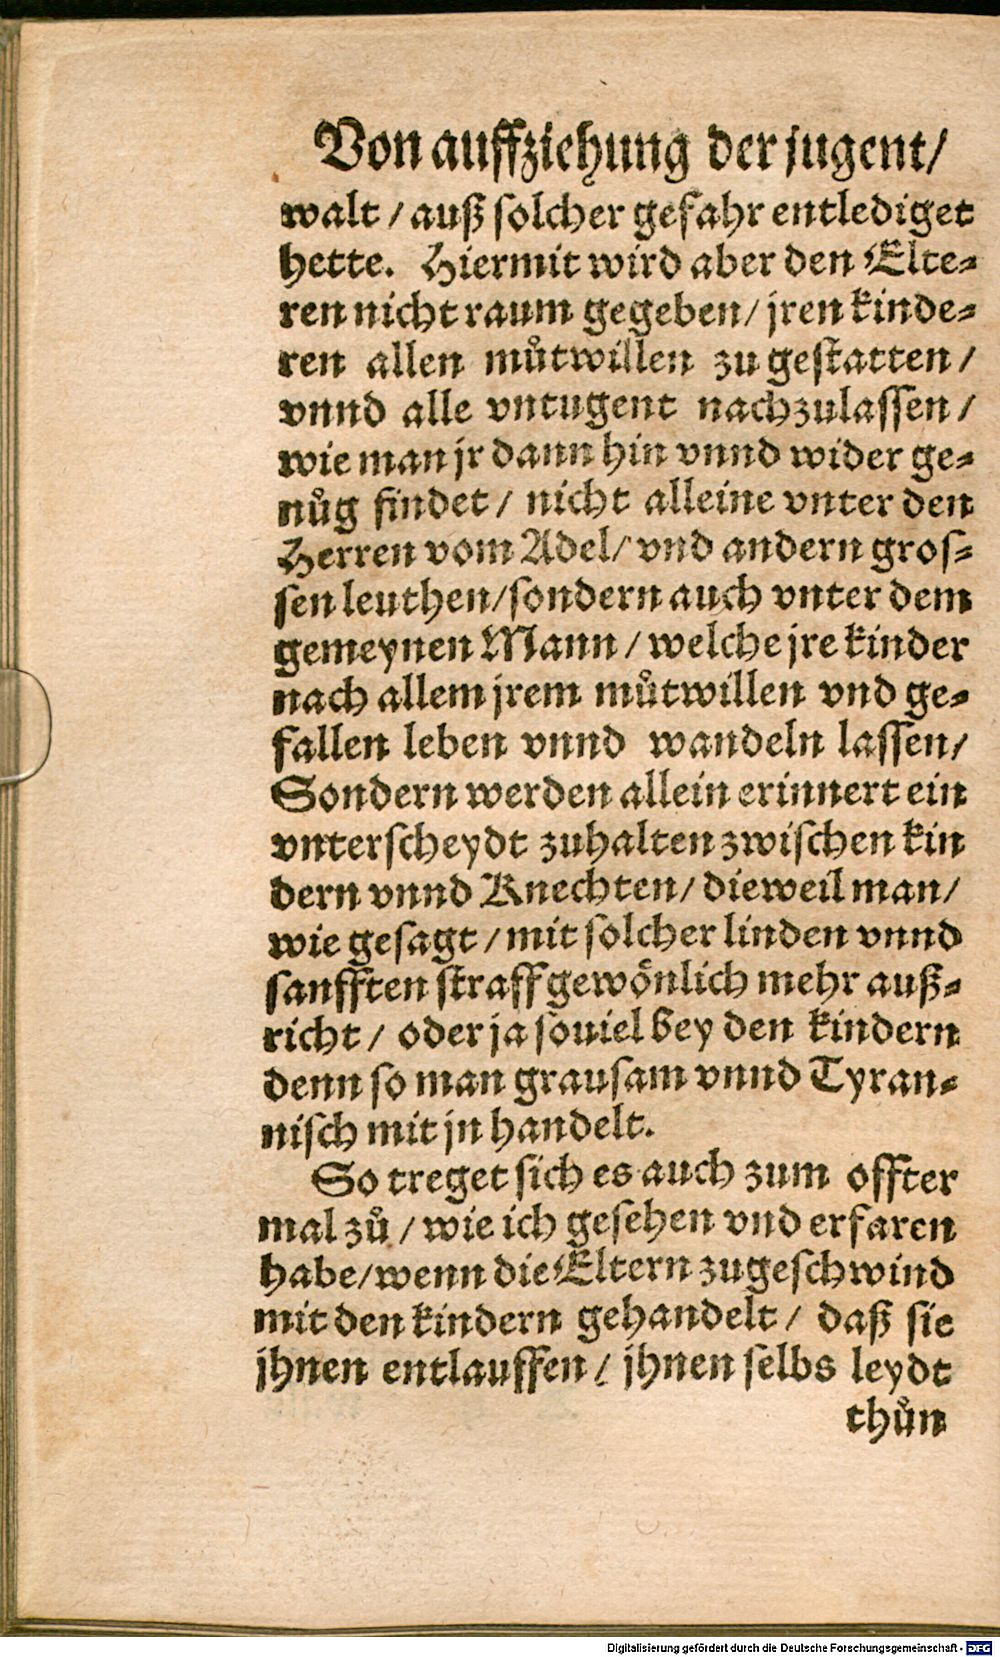 Von auffziehung der jugent/
walt / auß solcher gefahr entlediget
hette. Hiermit wird aber den Elte-
ren nicht raum gegeben / jren kinde-
ren allen můtwillen zu gestatten /
vnnd alle vntugent nachzulassen /
wie man jr dann hin vnnd wider ge-
nůg findet / nicht alleine vnter den
Herren vom Adel / vnd andern gros-
sen leuthen/sondern auch vnter dem
gemeynen Mann / welche jre kinder
nach allem jrem můtwillen vnd ge-
fallen leben vnnd wandeln lassen/
Sondern werden allein erinnert ein
vnterscheydt zuhalten zwischen kin
dern vnnd Knechten/ dieweil man/
wie gesagt / mit solcher linden vnnd
sanfften straff gewönlich mehr auß-
richt / oder ja souiel bey den kindern
denn so man grausam vnnd Tyran-
nisch mit jn handelt.
So treget sich es auch zum offter
mal zů / wie ich gesehen vnd erfaren
habe/wenn die Eltern zugeschwind
mit den kindern gehandelt / daß sie
jhnen entlauffen / jhnen selbs leydt
thůn
Digitalisierung gefördert durch die Deutsche Forschungsgemeinschaft - DFG